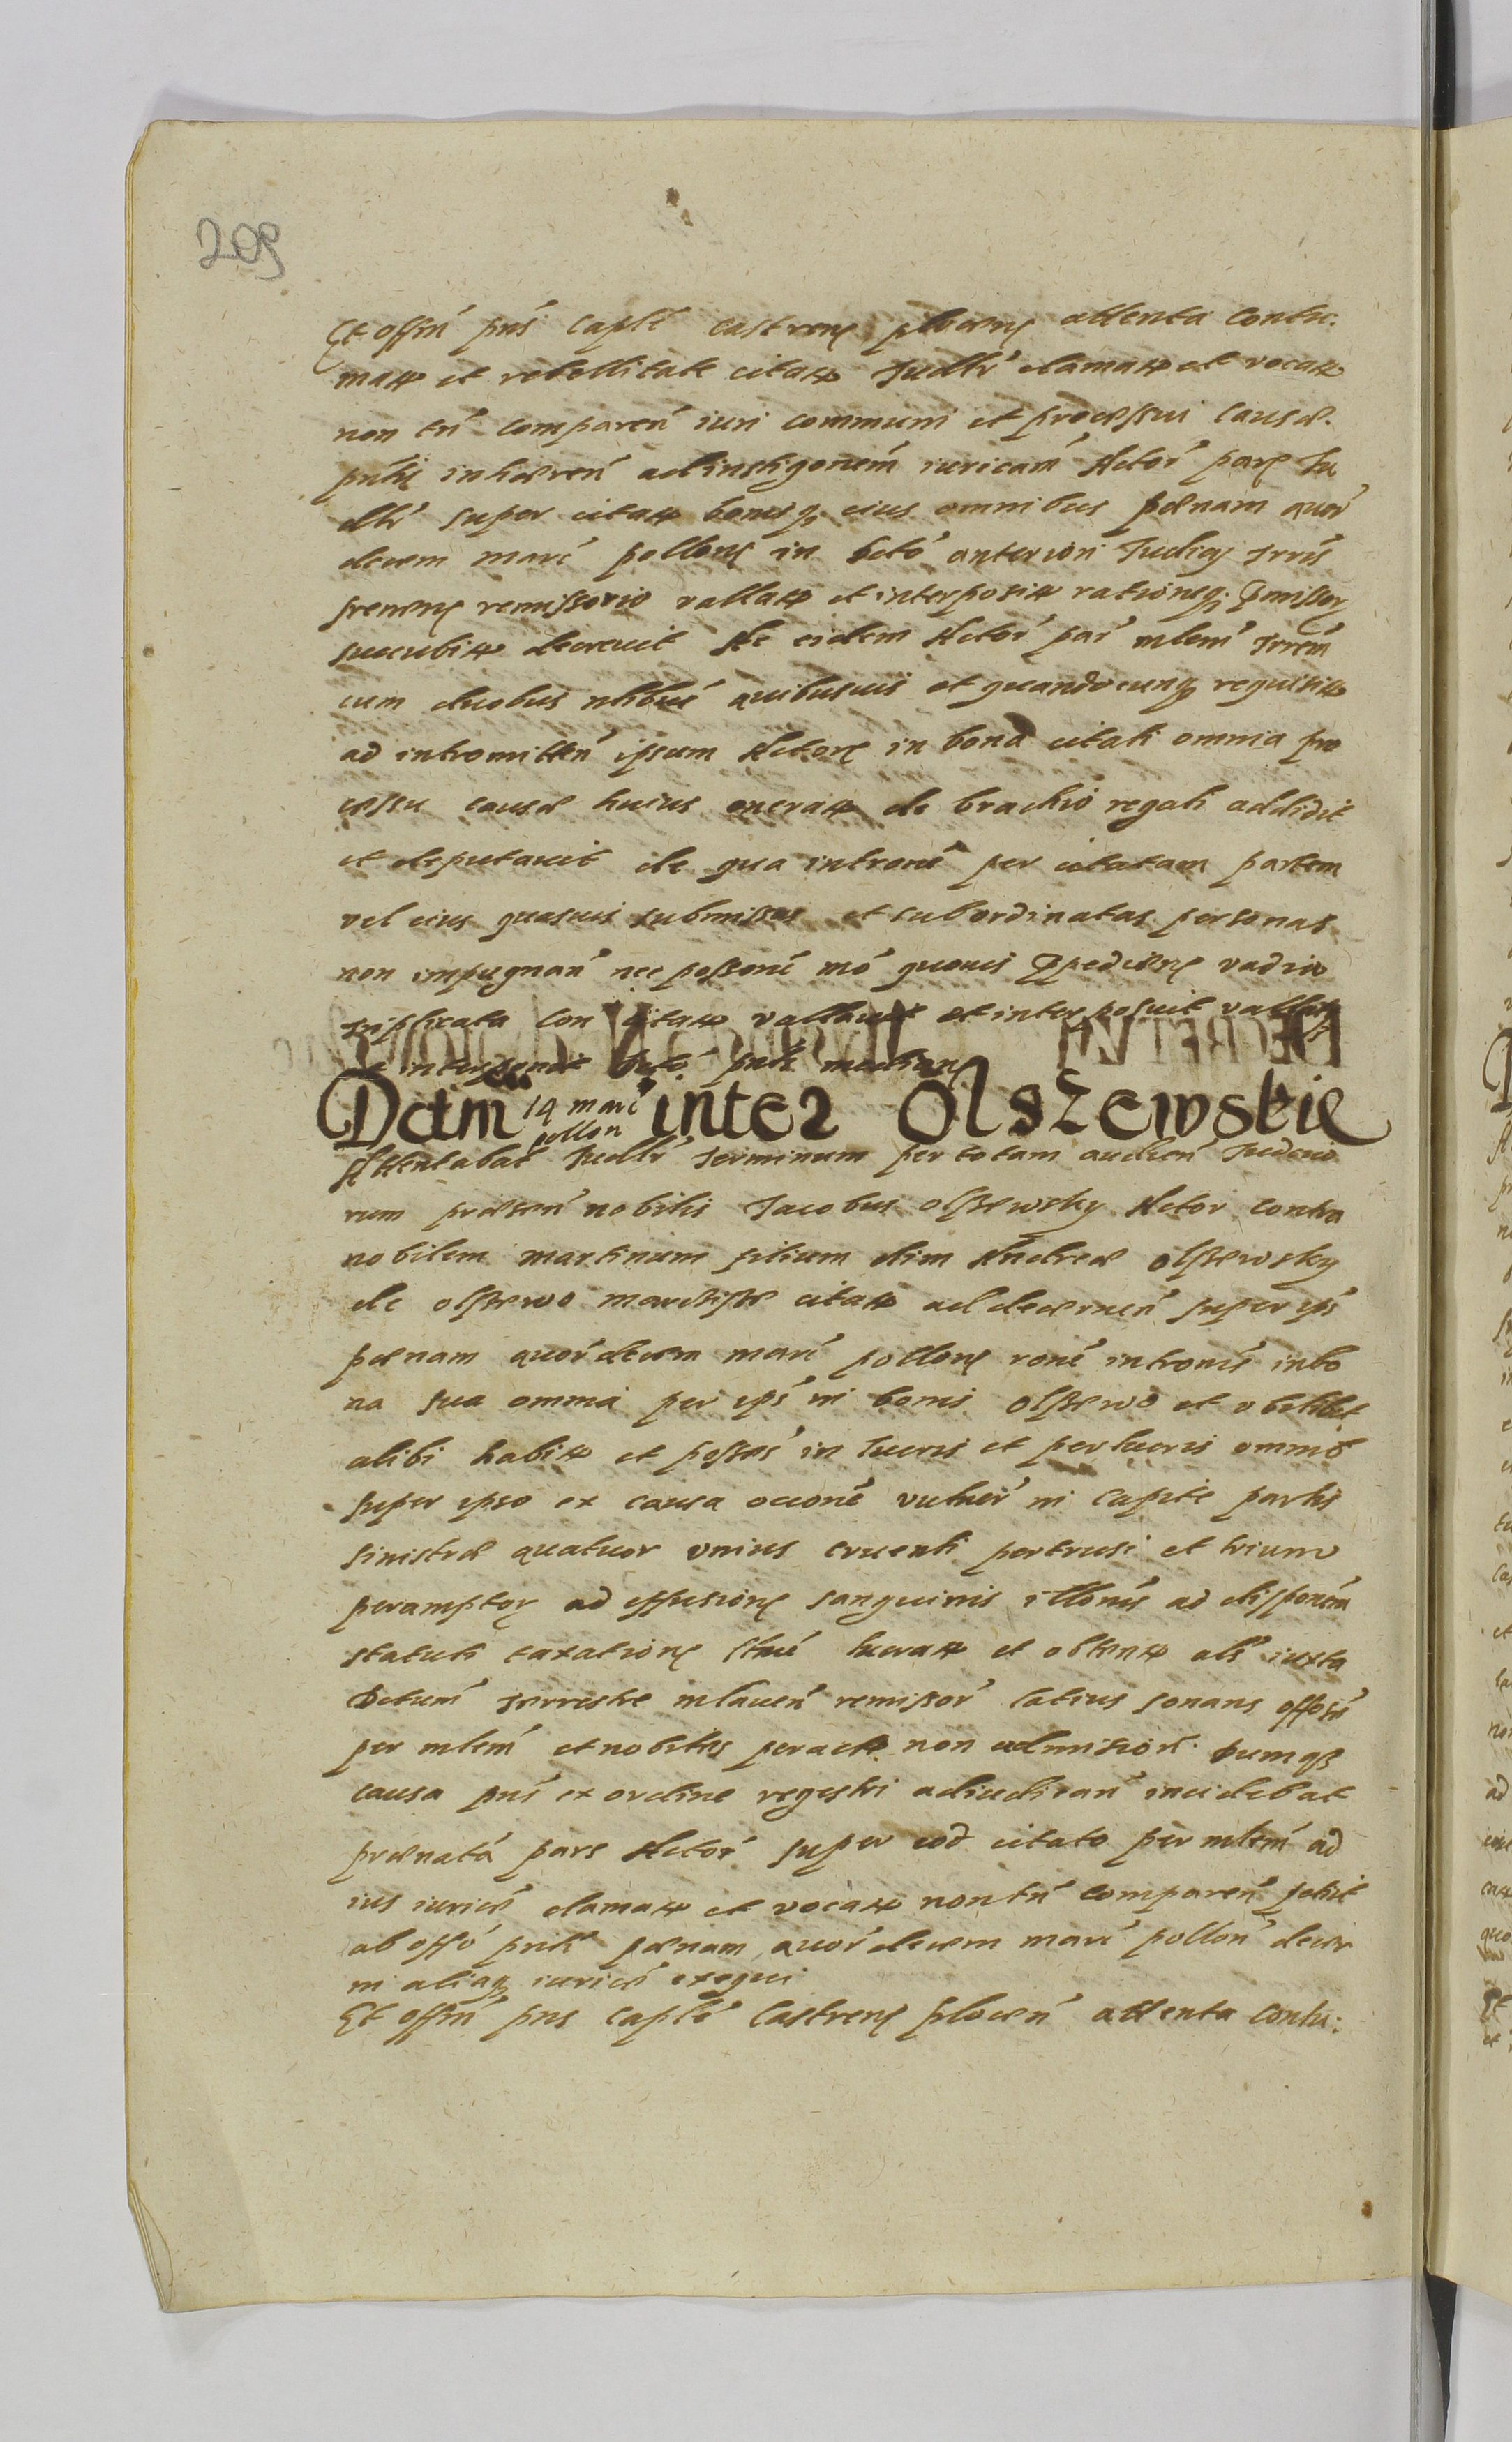 209
Et offm̄ pns̄ Capłē castrenẹ plocenẹ attenta contu:
matt et rebellitate citatt Judłr clamatt et vocatt
non tn̄ comparen̄ iuri communi et processui causæ
pntis inhæren̄ ad instigonem̄ iuricam̄ Actor̄ parẹ Ju
dłr super citatt bonisq, eius omnibus pœnam quor̄
decem marc̄ pollonẹ in Dcto anteriori Judicẹ Trrīs
srenensẹ remissorio vallatt et interpositt rationeq,
succubitt decreuit Ac eidem Actor̄ par̄ mlem̄ Trrem̄
cum duobus nlibus̄ quibusuis et quandocunq, requisitt
ad intromitten̄ ipsum Actorẹ in bona citati omnia pro
cessu causæ huius oneratt de brachio regali addidit
et deputauit de qua introne per citatam partem
vel eius quasuis submissas et subordinatas personas
non impugnan̄ nec possone mō quouis vadio
triplicata con citatt vallauit et interposuit vallatq
et interponit Dcto pnti medianẹ
Dctm̄ 14 marc̄ pollon inter Olszewskie
Attentabat Judłr Terminum per totam audien̄ Judicio
rum præsen̄ nobilis Jacobus Olszewsky Actor contra
nobilem martinum filium olim Andreæ Olszewsky
de olszewo marcisszẹ citatt ad decernen̄ super ips̄
pœnam quor̄decem marc̄ pollonẹ rone intromis̄ in bo
na sua omnia per ips̄ in bonis Olszewo et vbilibet
alibi habitt et posses̄ in lucris et perlucris omnib
super ipso ex causa occone vulner̄ in capite partis
sinistræ quatuor vnius cruenti pertrusi et trium
peramptorẹ ad effusionẹ sanguinis illonis̄ ad disponem̄
statuti taxationẹ lucratt et obtentt als̄ iuxta
Dctum̄ Terrestre mlauen̄ remissor̄ latius sonans
per mlem̄ et nobiles peractt non admission̄ Dumqȝ
causa pns̄ ex ordine regestri adiudican̄ incidebat
prænatá pars Actor̄ super eod citato per mlem̄ ad
ius iurice clamatt et vocatt non tn̄ comparen̄ petiit
ab offō pnti pœnam quor̄decem marc̄ pollon̄ decer
ni aliaq, iurice exequi
Et offm̄ pns Capłē Castrenẹ plocen̄ attenta contu: